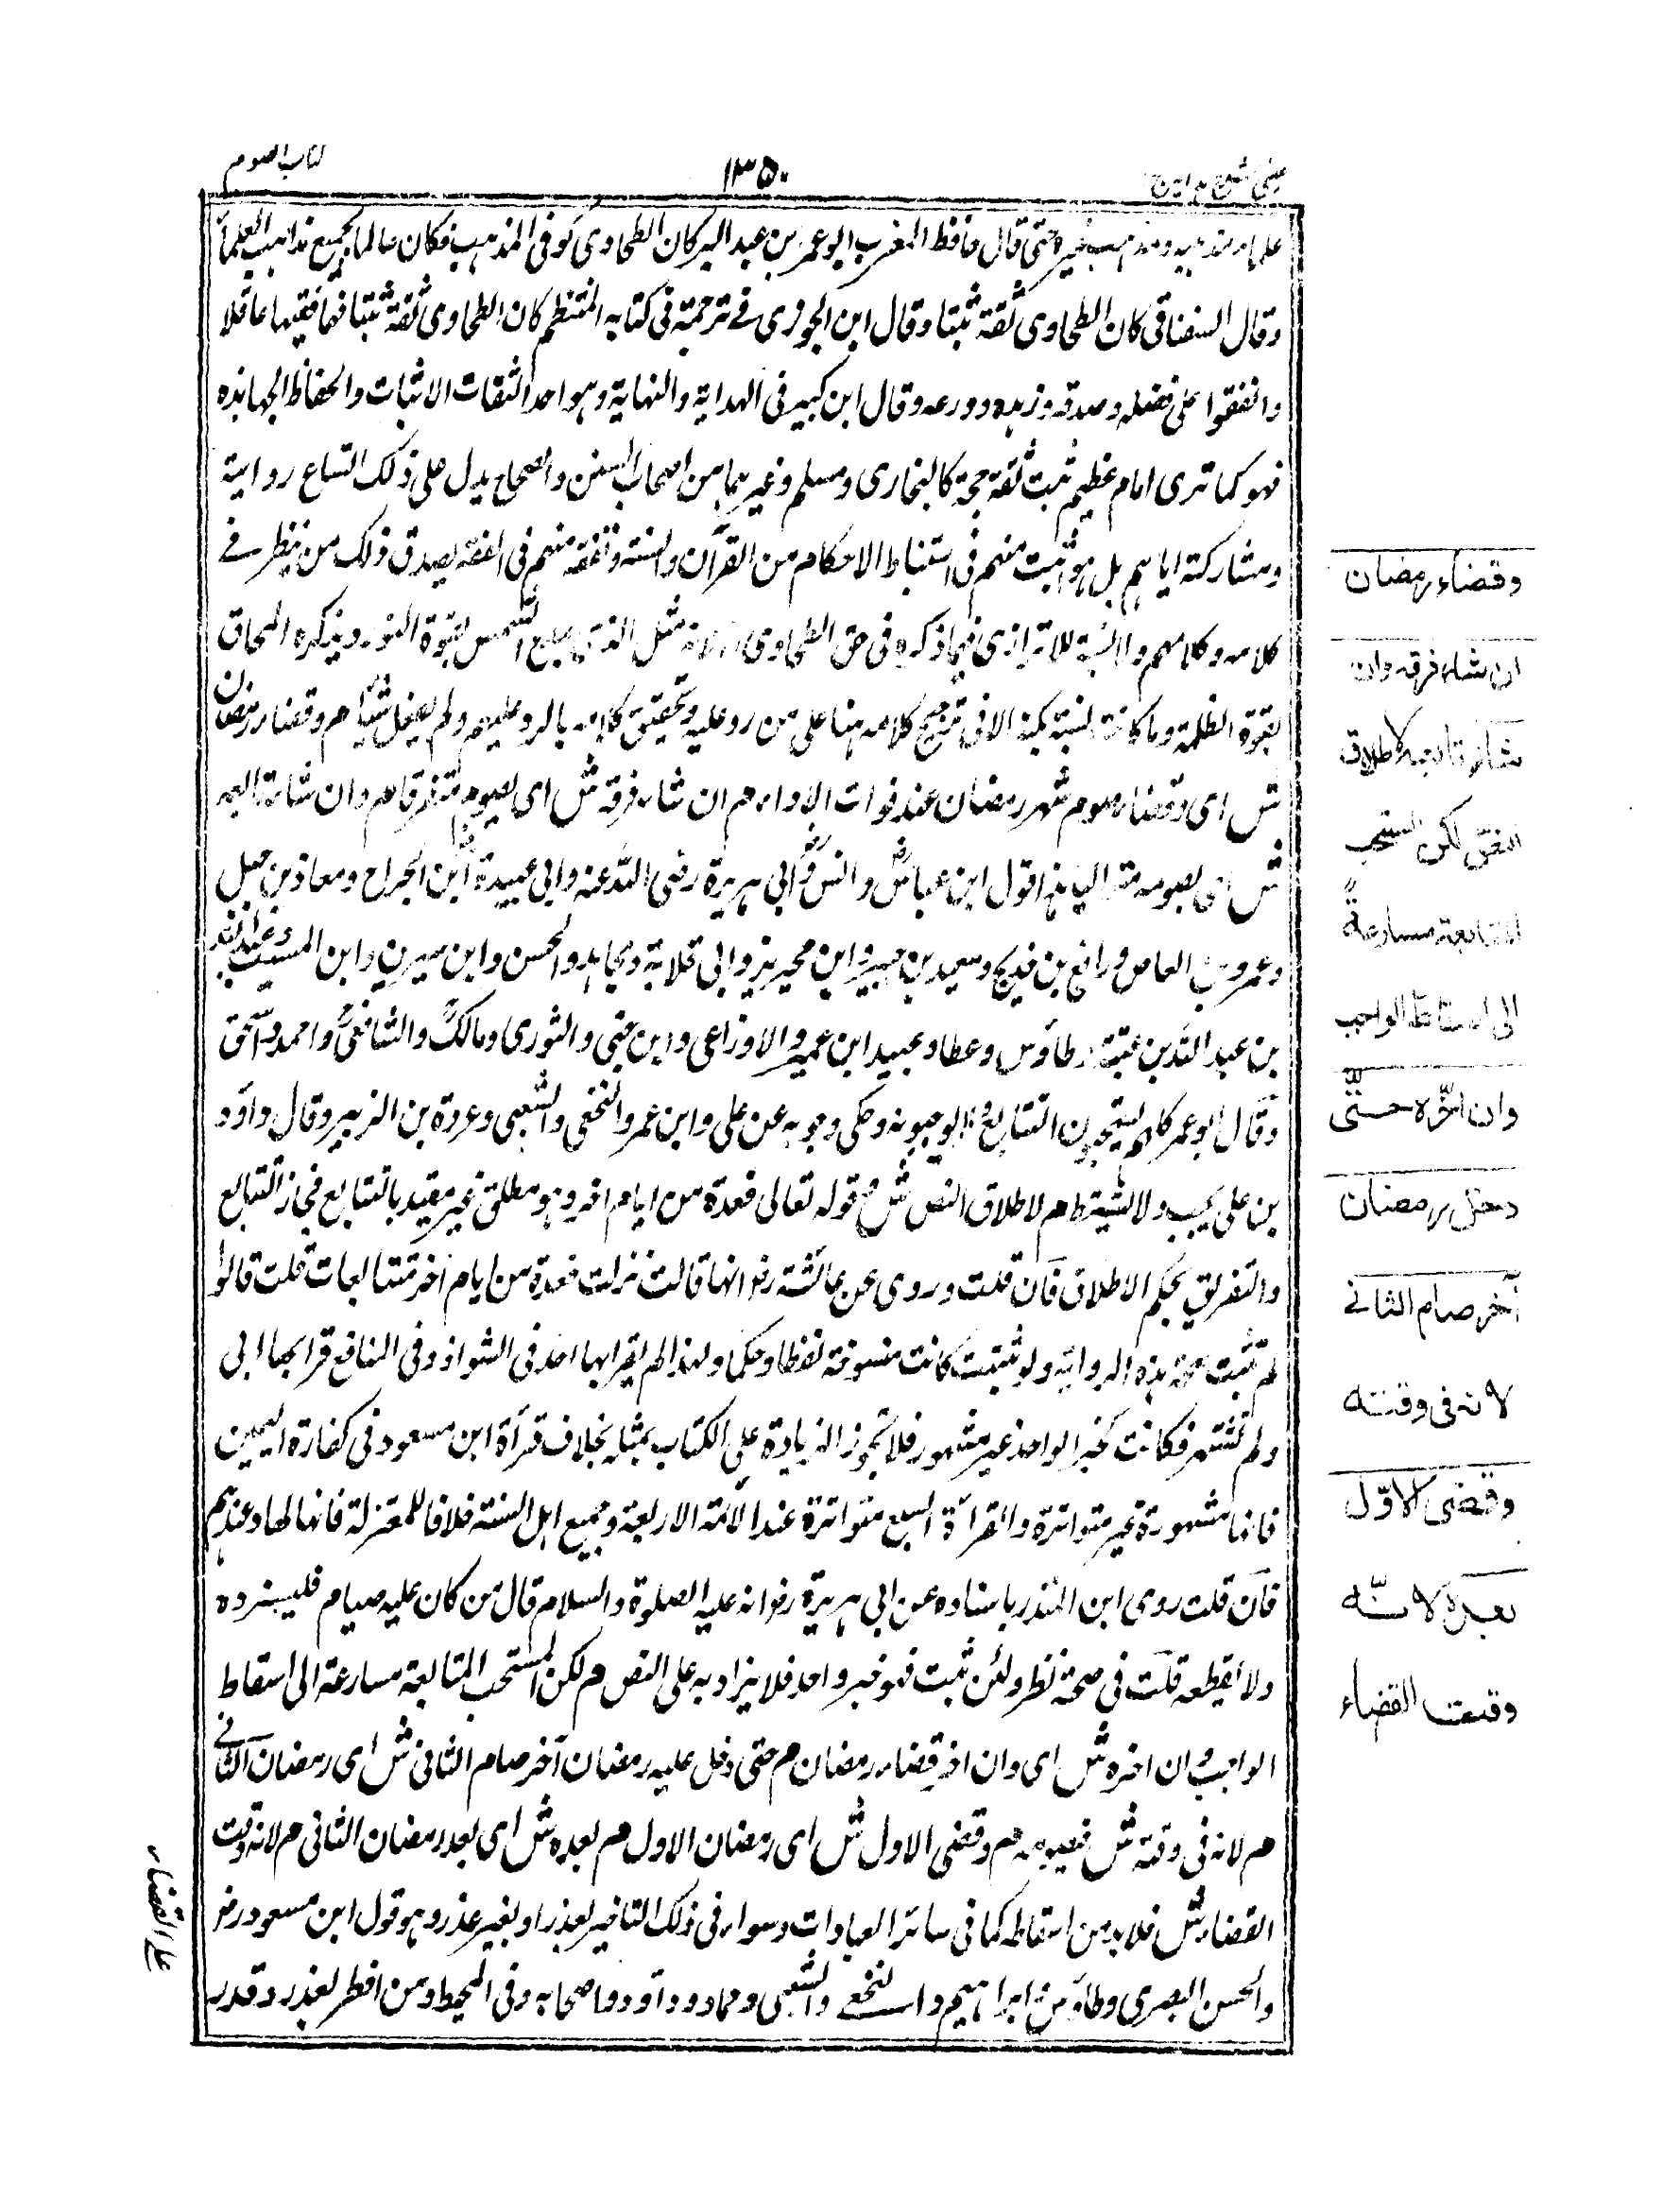 عینی شرح ہدایہ
۱۳۵۰
کتاب الصوم
علماء مذهبه ومذهب غيره حتى قال حافظ المغرب ابو عمر بن عبد البر كان الطحاوى كوفى المذهب فكان عالما بجميع مذاهب العلماء
وقال السغناقى كان الطحاوى ثقة ثبتا وقال ابن الجوزى فى ترجمة فى كتابه المنتظم كان الطحاوى ثقة ثبتا فهما فقيها عاقلا
واتفقوا على فضله وصدقه وزهده وورعه وقال ابن كثير فى الهداية والنهاية وهو احد الثقات الاثبات والحفاظ الجهابذه
فهو كما ترى امام عظيم ثبت ثقة حجة كالبخارى ومسلم وغيرهما من اصحاب السنن والصحاح يدل على ذلك اتساع رواية
ومشاركته اياهم بل هو اثبت منهم فى استنباط الاحكام من القرآن والسنة وتفقه منهم فى الفقه يصدق ذلك من ينظر فى
كلامه وكلامهم ولا نسبة للاترازى فيما ذكره فى حق الطحاوى لانه مثل الذى الشمس بقوة النور ويذكره المحاق
بقوة الظلمة وما كانت نسبة الا فى ترجيح كلامه هنا على من رد عليه وتحقيق كلامه بالرد عليهم ولم يفعل شيئا م وقضاء رمضان
ش اى وقضاء صوم شهر رمضان عند فوات الاداء م ان شاء فرقه ش اى يصومه متفرقا م وان شاء تابعه
ش اى يصومه متتاليا هذا قول ابن عباس وانس وابى هريرة رضى الله عنه وابى عبيدة ابن الجراح ومعاذ بن جبل
وعمرو بن العاص ورافع بن خديج وسعيد بن جبير وابن محيريز وابى قلابة ومجاهد والحسن وابن سيرين وابن المسيب وعبد الله
بن عبد الله بن عتبة وطاؤس وعطاء وعبيد ابن عمير والاوزاعى وابن حيى والثورى ومالك والشافعى واحمد واسحق
وقال ابو عمر كلهم يستحبون التتابع ولا يوجبونه وحكى وجوبه عن على وابن عمر والنخعى والشعبى وعروة بن الزبير وقال داود
بن على يجب ولا يشترط م لاطلاق النص ش وهو قوله تعالى فعدة من ايام اخر وهو مطلق غير مقيد بالتتابع فجاز التتابع
والتفريق بحكم الاطلاق فان قلت وروى عن عائشة رض انها قالت نزلت فعدة من ايام اخر متتابعات قلت قالوا
لم تثبت صحة هذه الرواية ولو ثبتت كانت منسوخة لفظا وحكما ولهذا لم يقرأ بها احد فى الشواذ وفى المنافع قرأ بها ابى
ولم تشتهر فكانت كخبر الواحد غير مشهور فلا تجوز الزيادة على الكتاب بمثله بخلاف قرآة ابن مسعود فى كفارة اليمين
فانها مشهورة غير متواترة والقرآة السبع متواترة عند الائمة الاربعة وجميع اهل السنة خلافا للمعتزلة فانها احاد عندهم
فان قلت روى ابن المنذر باسناده عن ابى هريرة رض انه عليه الصلوة والسلام قال من كان عليه صيام فليسرده
ولا يقطعه قلت فى صحته نظر ولئن ثبت فهو خبر واحد فلا يزاد به على النص م لكن المستحب المتابعة مسارعة الى اسقاط
الواجب وان اخره ش اى وان اخر قضاء رمضان م حتى دخل عليه رمضان آخر صام الثانى ش اى رمضان الثانى
م لانه فى وقته ش فيصومه م وقضى الاول ش اى رمضان الاول م بعده ش اى بعد رمضان الثانى م لانه وقت
القضاء ش فلا بد من اسقاطه كما فى سائر العبادات وسواء فى ذلك التاخير بعذر او بغير عذر وهو قول ابن مسعود رض
والحسن البصرى وطاؤس وابراهيم والنخعى والشعبى وحماد وداود واصحابه وفى المحيط ومن افطر لعذر وقدر
على القضاء
وقضاء رمضان
ان شاء فرقه وان
شاء تابعه لاطلاق
النص لكن المستحب
المتابعة مسارعةً
الى اسقاط الواجب
وان اخّره حتّى
دخل رمضان
آخر صام الثانى
لانه فى وقته
وقضى الاوّل
بعده لانّه
وقت القضاء